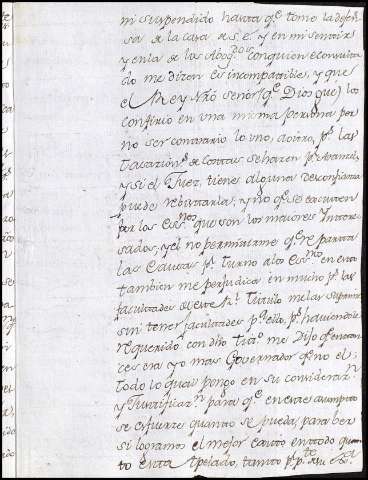 mi suspendido hasta q.e tome la defen
sa de la casa de S.E. y en mi sentir
y en la de los Abog.dos con quien e consulta
do me dizen es incompatible, y que
el Rey Nro señor (q.e Dios gue) los
confirio en una misma persona por
no ser contrario lo uno, a otro, p.s las
tasacion.s de costas se hazen p.r
y si el Juez, tiene alguna desconfianza
puede rebistarla, y no q.e se executen
por los Es.nos que son los maiores Intere
sados, y el no permitirme q.e reparta
las Causas p.r turno a los Es.nos en esto
tambien me perjudica en mucho p.s las
facultades de este R.l Titulo me las suspende
sin tener facultades p.a ello, p.s haviendole
requerido con dho me Dijo q.e enton
ces era yo mas Governador q.e no el;
todo lo qual pongo en su considerac.n
y Justificaz.n para q.e en este asumpto
se esfuerze quanto se pueda, para ber
si logramos el mejor exito en todo quan
to esta tanto p.r p.te